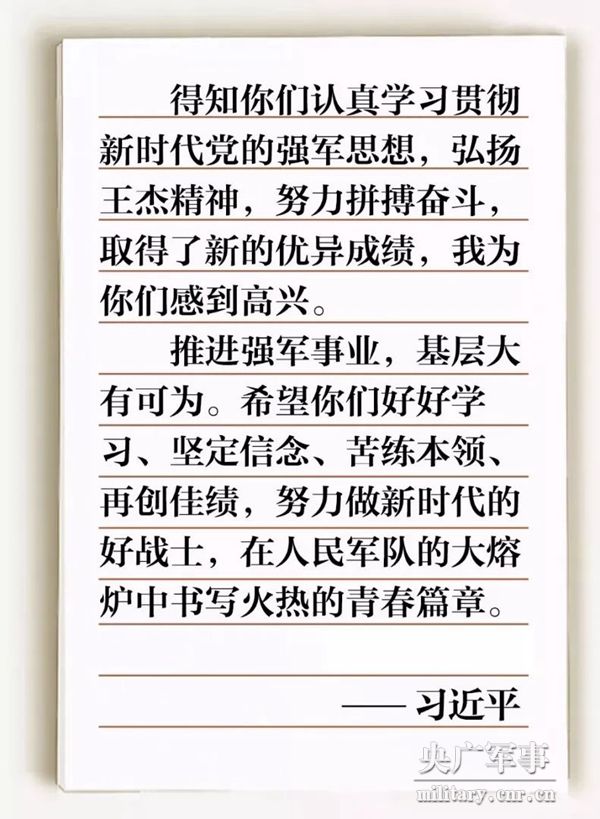 得知你们认真学习贯彻
新时代党的强军思想，弘扬
王杰精神，努力拼搏奋斗，
取得了新的优异成绩，我为
你们感到高兴。
推进强军事业，基层大
有可为。希望你们好好学
习、坚定信念、苦练本领、
再创佳绩，努力做新时代的
好战士，在人民军队的大熔
炉中书写火热的青春篇章。
—— 习近平
央广军事
military.cnr.cn